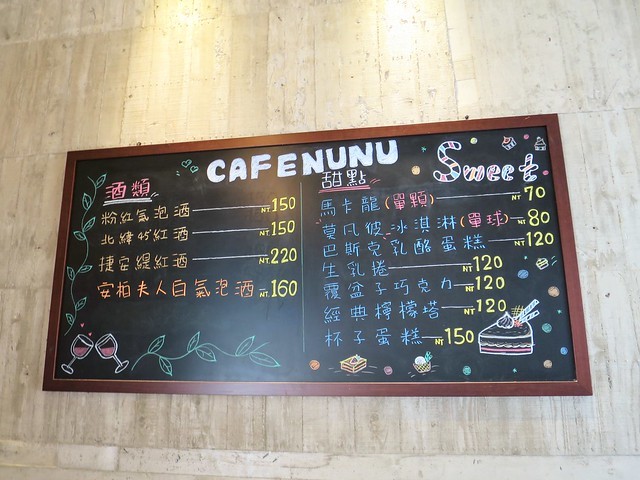 CAFENUNU
酒類
粉紅氣泡酒 NT.150
北緯45°紅酒 NT.150
捷克緹紅酒 NT.220
安柏夫人白氣泡酒 NT.160
甜點
Sweet
馬卡龍(單顆) NT.70
莫凡彼冰淇淋(單球) NT.80
巴斯克乳酪蛋糕 NT.120
生乳捲 NT.120
覆盆子巧克力 NT.120
經典檸檬塔 NT.120
杯子蛋糕 NT.150